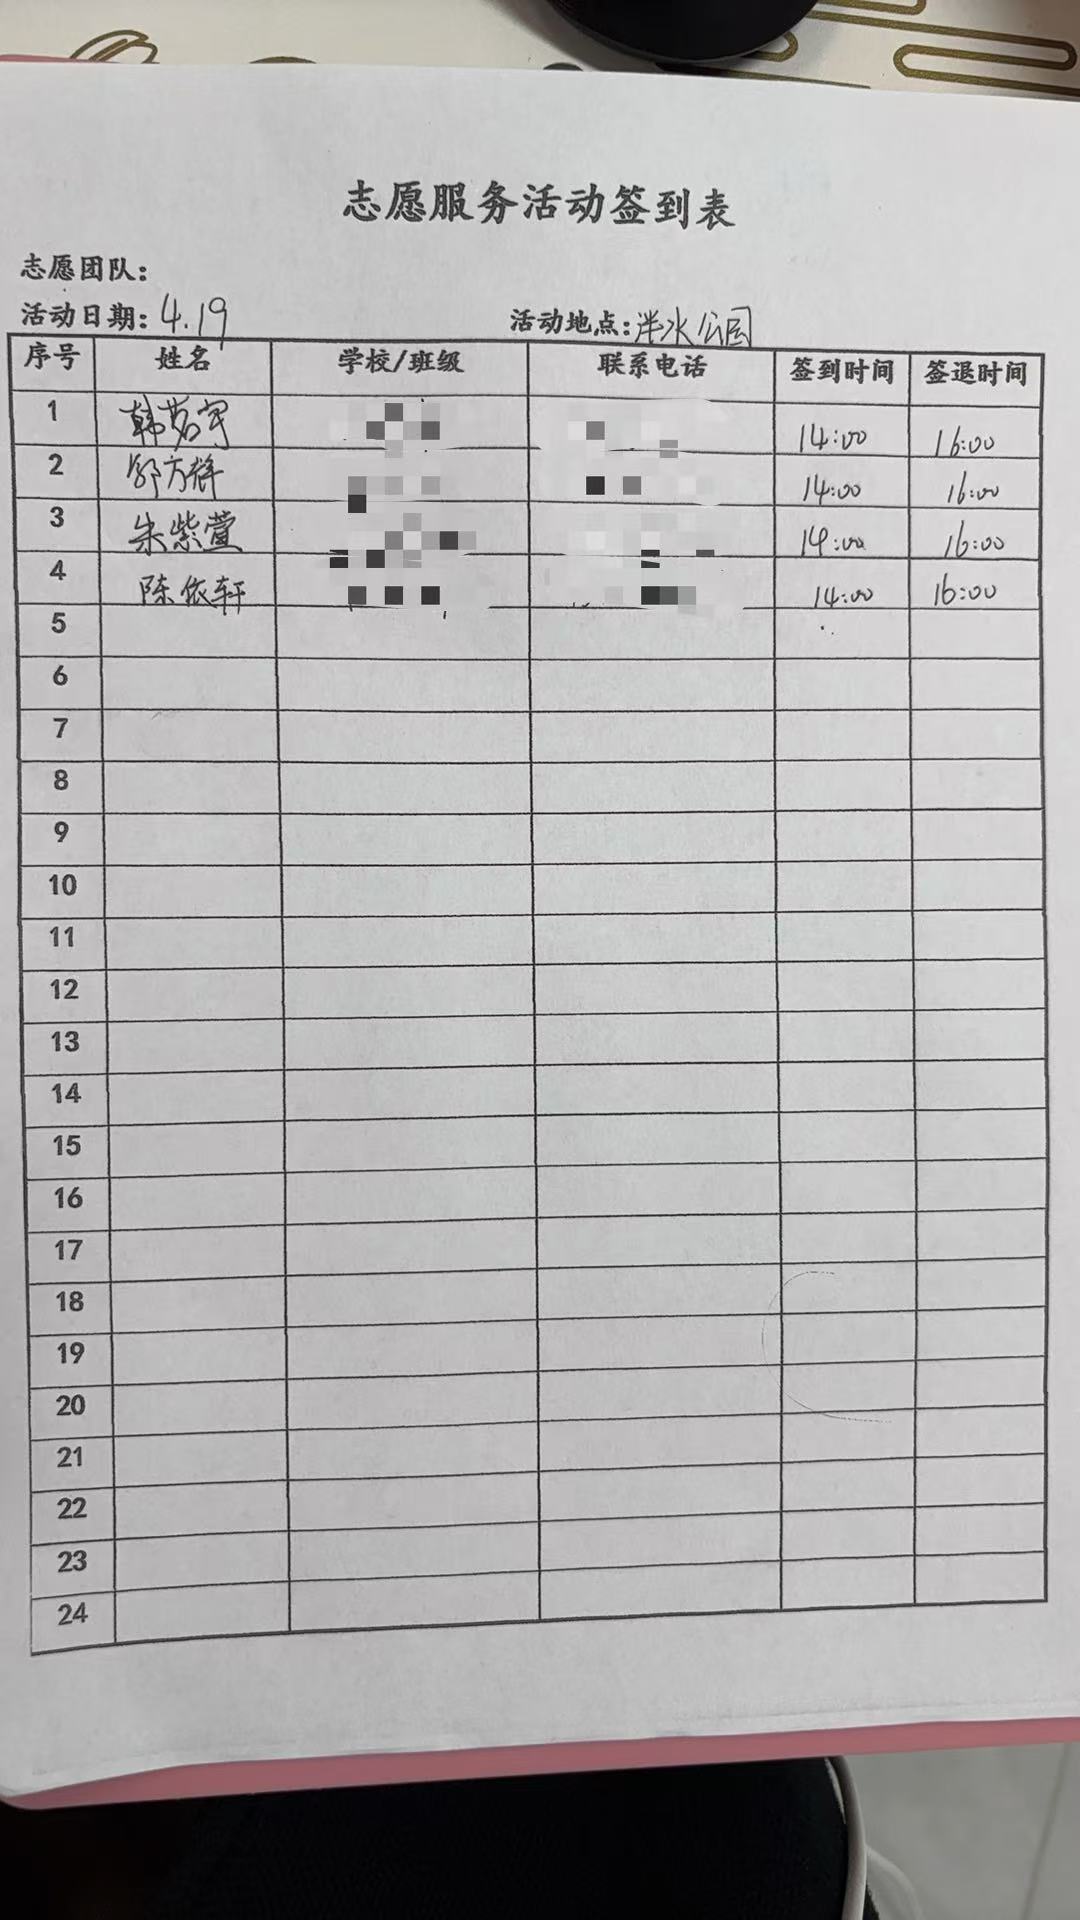 志愿服务活动签到表
志愿团队：
活动日期：4.19 活动地点：泮水公园
序号 姓名 学校/班级 联系电话 签到时间 签退时间
1 韩茗宇 14:00 16:00
2 郭方辉 14:00 16:00
3 朱紫萱 14:00 16:00
4 陈依轩 14:00 16:00
5
6
7
8
9
10
11
12
13
14
15
16
17
18
19
20
21
22
23
24